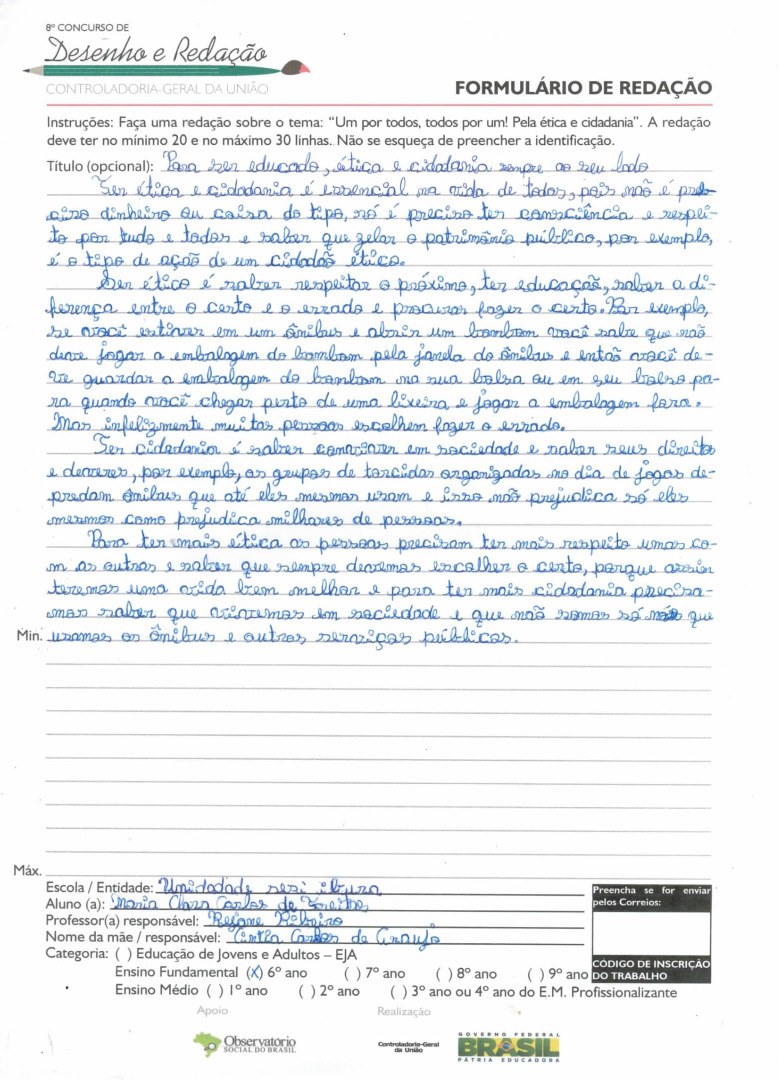 8º CONCURSO DE
Desenho e Redação
CONTROLADORIA-GERAL DA UNIÃO
FORMULÁRIO DE REDAÇÃO
Instruções: Faça uma redação sobre o tema: “Um por todos, todos por um! Pela ética e cidadania”. A redação
deve ter no mínimo 20 e no máximo 30 linhas. Não se esqueça de preencher a identificação.
Título (opcional): Para ser educado, ética e cidadania sempre ao seu lado
Ter ética e cidadania é essencial na vida de todos, pois não é pre-
ciso dinheiro ou coisa do tipo, só é preciso ter consciência e respei-
to por tudo e todos e saber que zelar o patrimônio público, por exemplo,
é o tipo de ação de um cidadão ético.
Ser ético é saber respeitar o próximo, ter educação, saber a di-
ferença entre o certo e o errado e procurar fazer o certo. Por exemplo,
se você estiver em um ônibus e abrir um bombom você sabe que não
deve jogar a embalagem do bombom pela janela do ônibus e então você de-
ve guardar a embalagem do bombom na sua bolsa ou em seu bolso pa-
ra quando você chegar perto de uma lixeira e jogar a embalagem fora.
Mas infelizmente muitas pessoas escolhem fazer o errado.
Ter cidadania é saber conviver em sociedade e saber seus direitos
e deveres, por exemplo, os grupos de torcidas organizadas no dia de jogos de-
predam ônibus que até eles mesmos usam e isso não prejudica só eles
mesmos como prejudica milhares de pessoas.
Para ter mais ética as pessoas precisam ter mais respeito umas co-
m as outras e saber que sempre devemos escolher o certo, porque assim
teremos uma vida bem melhor e para ter mais cidadania precisa-
mos saber que vivemos em sociedade e que não somos só nós que
Min. usamos os ônibus e outros serviços públicos.
Máx.
Escola / Entidade: Unidadade sesi ibura
Aluno (a): Maria Clara Carlos de Freitas
Professor(a) responsável: Rejane Ribeiro
Nome da mãe / responsável: Cintia Carlos de Araujo
Categoria: ( ) Educação de Jovens e Adultos – EJA
Ensino Fundamental (X) 6º ano ( ) 7º ano ( ) 8º ano ( ) 9º ano
Ensino Médio ( ) 1º ano ( ) 2º ano ( ) 3º ano ou 4º ano do E.M. Profissionalizante
Preencha se for enviar
pelos Correios:
CÓDIGO DE INSCRIÇÃO
DO TRABALHO
Apoio
Realização
Observatório
SOCIAL DO BRASIL
Controladoria-Geral
da União
GOVERNO FEDERAL
BRASIL
PÁTRIA EDUCADORA